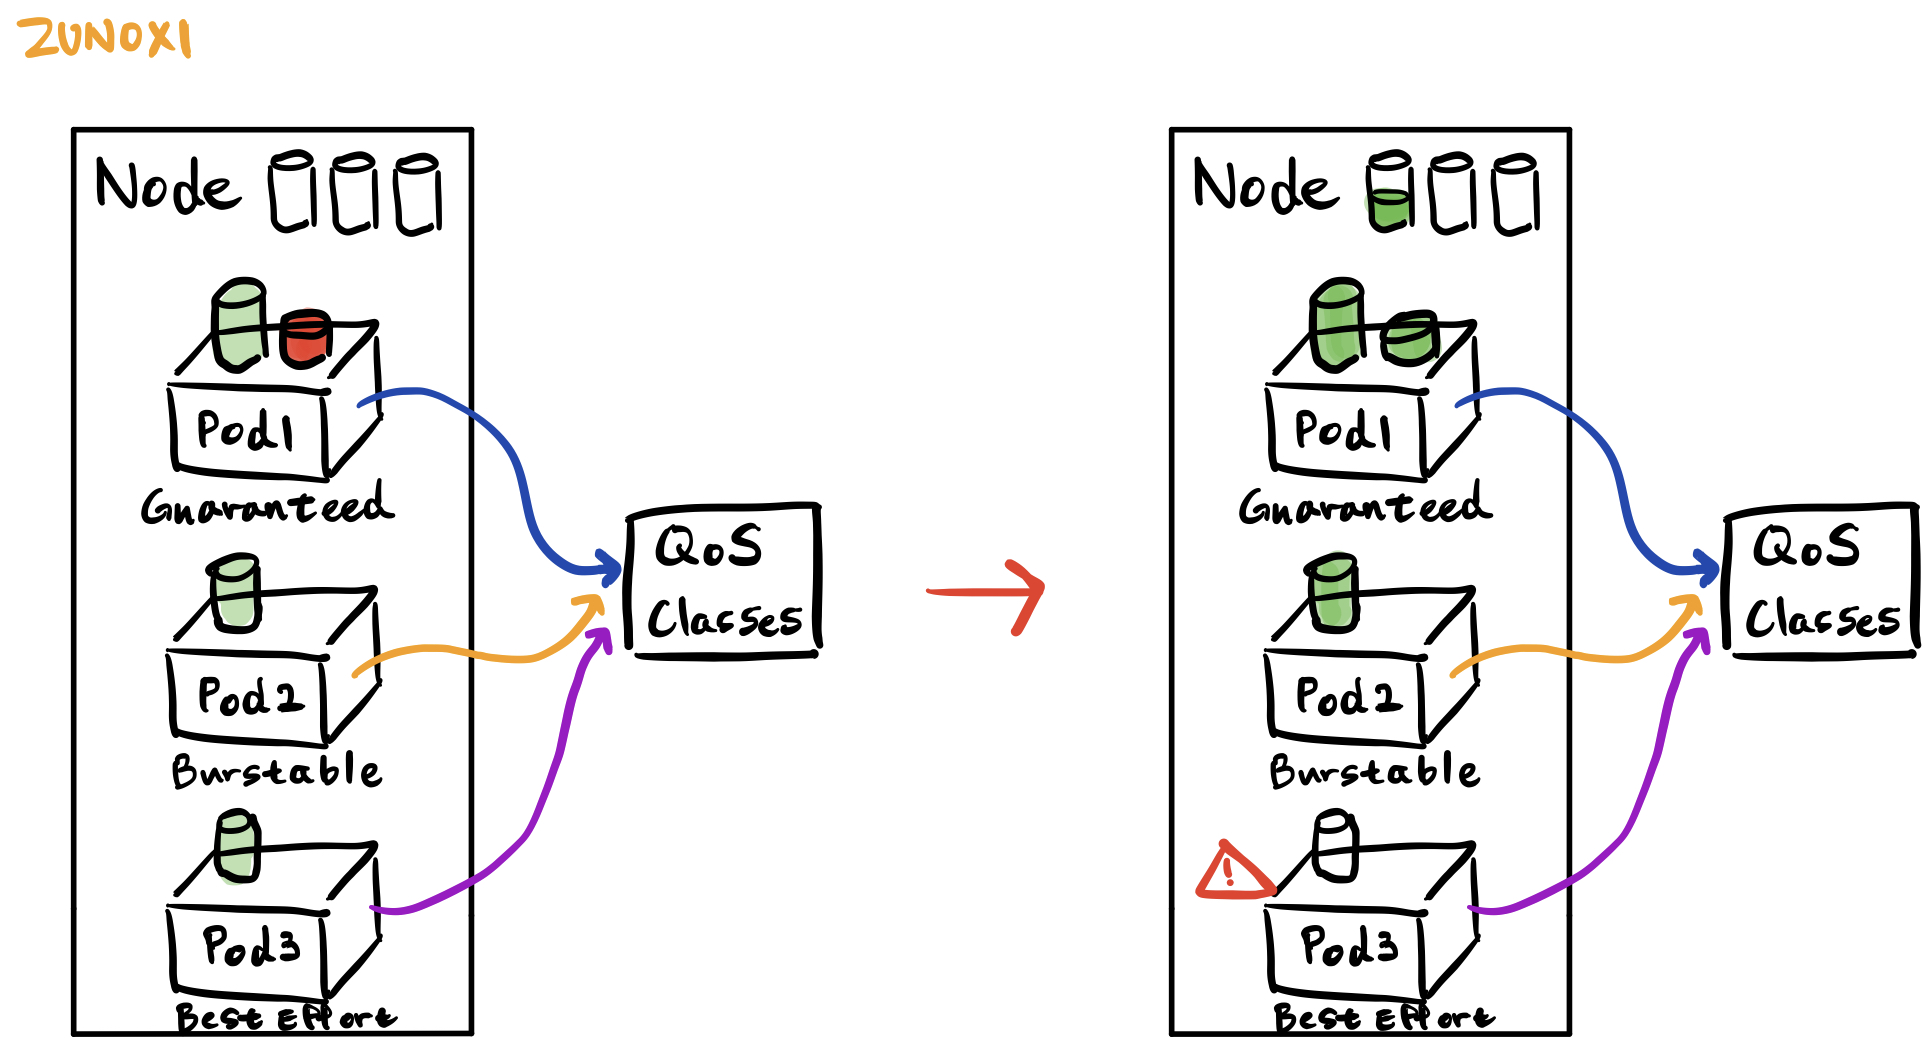 ZUNOXI
Node
Pod1
Guaranteed
Pod2
Burstable
Pod3
Best Effort
QoS
Classes
Node
Pod1
Guaranteed
Pod2
Burstable
!
Pod3
Best Effort
QoS
Classes